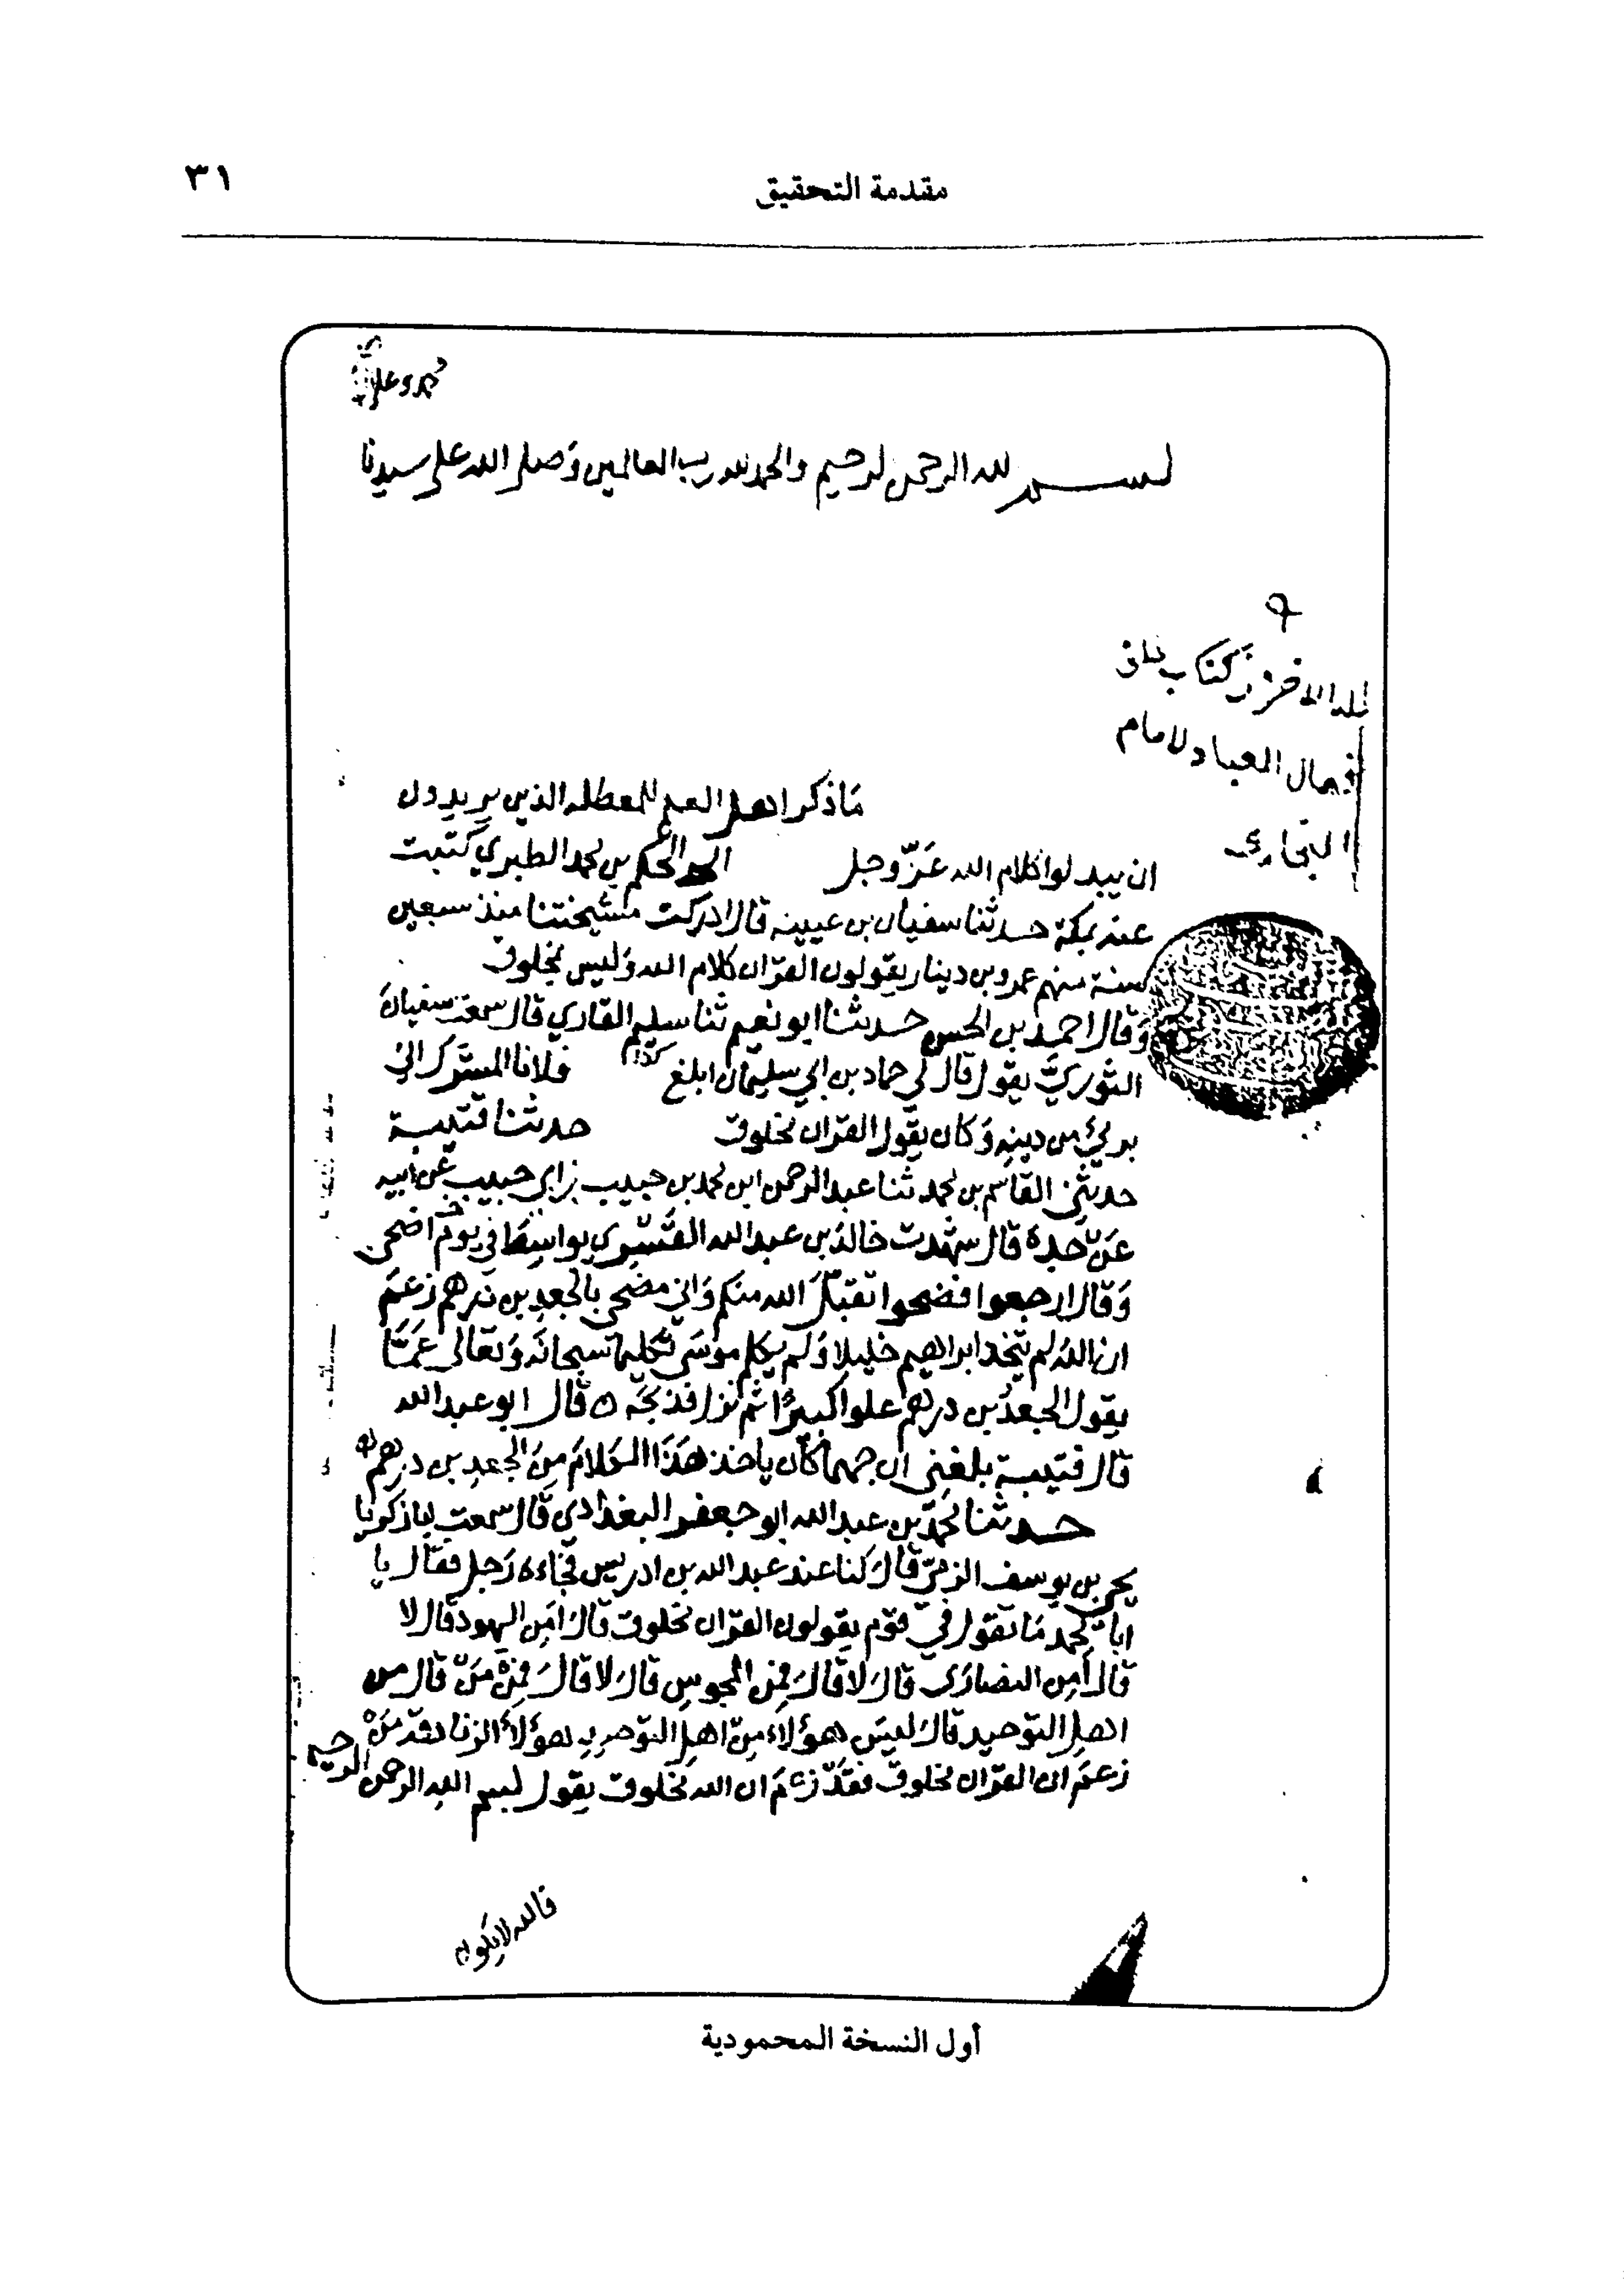 مقدمة التحقيق
٣١
بسم الله الرحمن الرحيم والحمد لله رب العالمين وصلى الله على سيدنا
محمد وعلى
كتاب خلق
افعال العباد للامام
البخاري
ما ذكر اهل العلم للمعطله الذين يريدون
ان يبدلوا كلام الله عز وجل الحكم بن محمد الطبري كتبت
عنه بمكة حدثنا سفيان بن عيينه قال ادركت مشيختنا منذ سبعين
سنة منهم عمرو بن دينار يقولون القران كلام الله وليس بمخلوق
وقال احمد بن الحسن حدثنا ابو نعيم ثنا سليم القاري قال سمعت سفيان
الثوري يقول قال لي حماد بن ابي سليمان ابلغ كذا فلانا المشرك اني
بريء من دينه وكان يقول القران مخلوق حدثنا قتيبة
حدثني القاسم بن محمد ثنا عبد الرحمن ابن محمد بن حبيب بن ابي حبيب عن ابيه
عن جده قال شهدت خالد بن عبد الله القسري بواسط في يوم اضحى
وقال ارجعوا فضحوا تقبل الله منكم واني مضحي بالجعد بن درهم زعم
ان الله لم يتخذ ابراهيم خليلا ولم يكلم موسى تكليما سبحانه وتعالى عما
يقول الجعد بن درهم علوا كبيرا ثم نزل فذبحه ه قال ابو عبد الله
قال قتيبة بلغني ان جهما كان ياخذ هذا الكلام من الجعد بن درهم
حدثنا محمد بن عبد الله ابو جعفر البغدادي قال سمعت ابا زكريا
يحيى بن يوسف الزمي قال كنا عند عبد الله بن ادريس فجاءه رجل فقال يا
ابا محمد ما تقول في قوم يقولون القران مخلوق قال امن اليهود قال لا
قال امن النصارى قال لا قال فمن المجوس قال لا قال فمن من قال من
اهل التوحيد قال ليس هؤلاء من اهل التوحيد هؤلاء الزنادقة من
زعم ان القران مخلوق فقد زعم ان الله مخلوق يقول بسم الله الرحمن الرحيم
فالله لا يكون
أول النسخة المحمودية